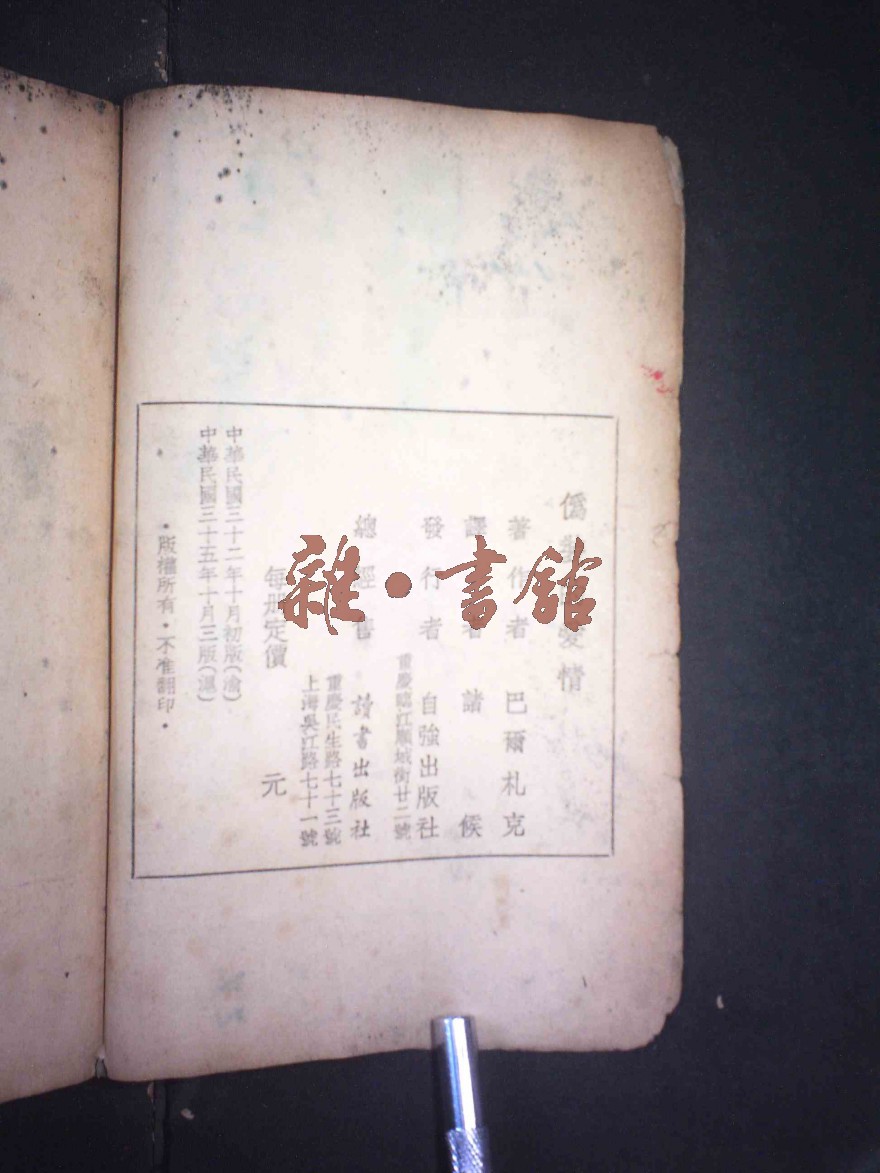 偽 愛情
著作者 巴爾札克
譯 者 諸候
發行者 自強出版社
重慶臨江順城街廿二號
總經售 讀書出版社
重慶民生路七十三號
上海吳江路七十一號
每册定價 元
中華民國三十二年十月初版(渝)
中華民國三十五年十月三版(滬)
•版權所有•不准翻印•
雜•書館